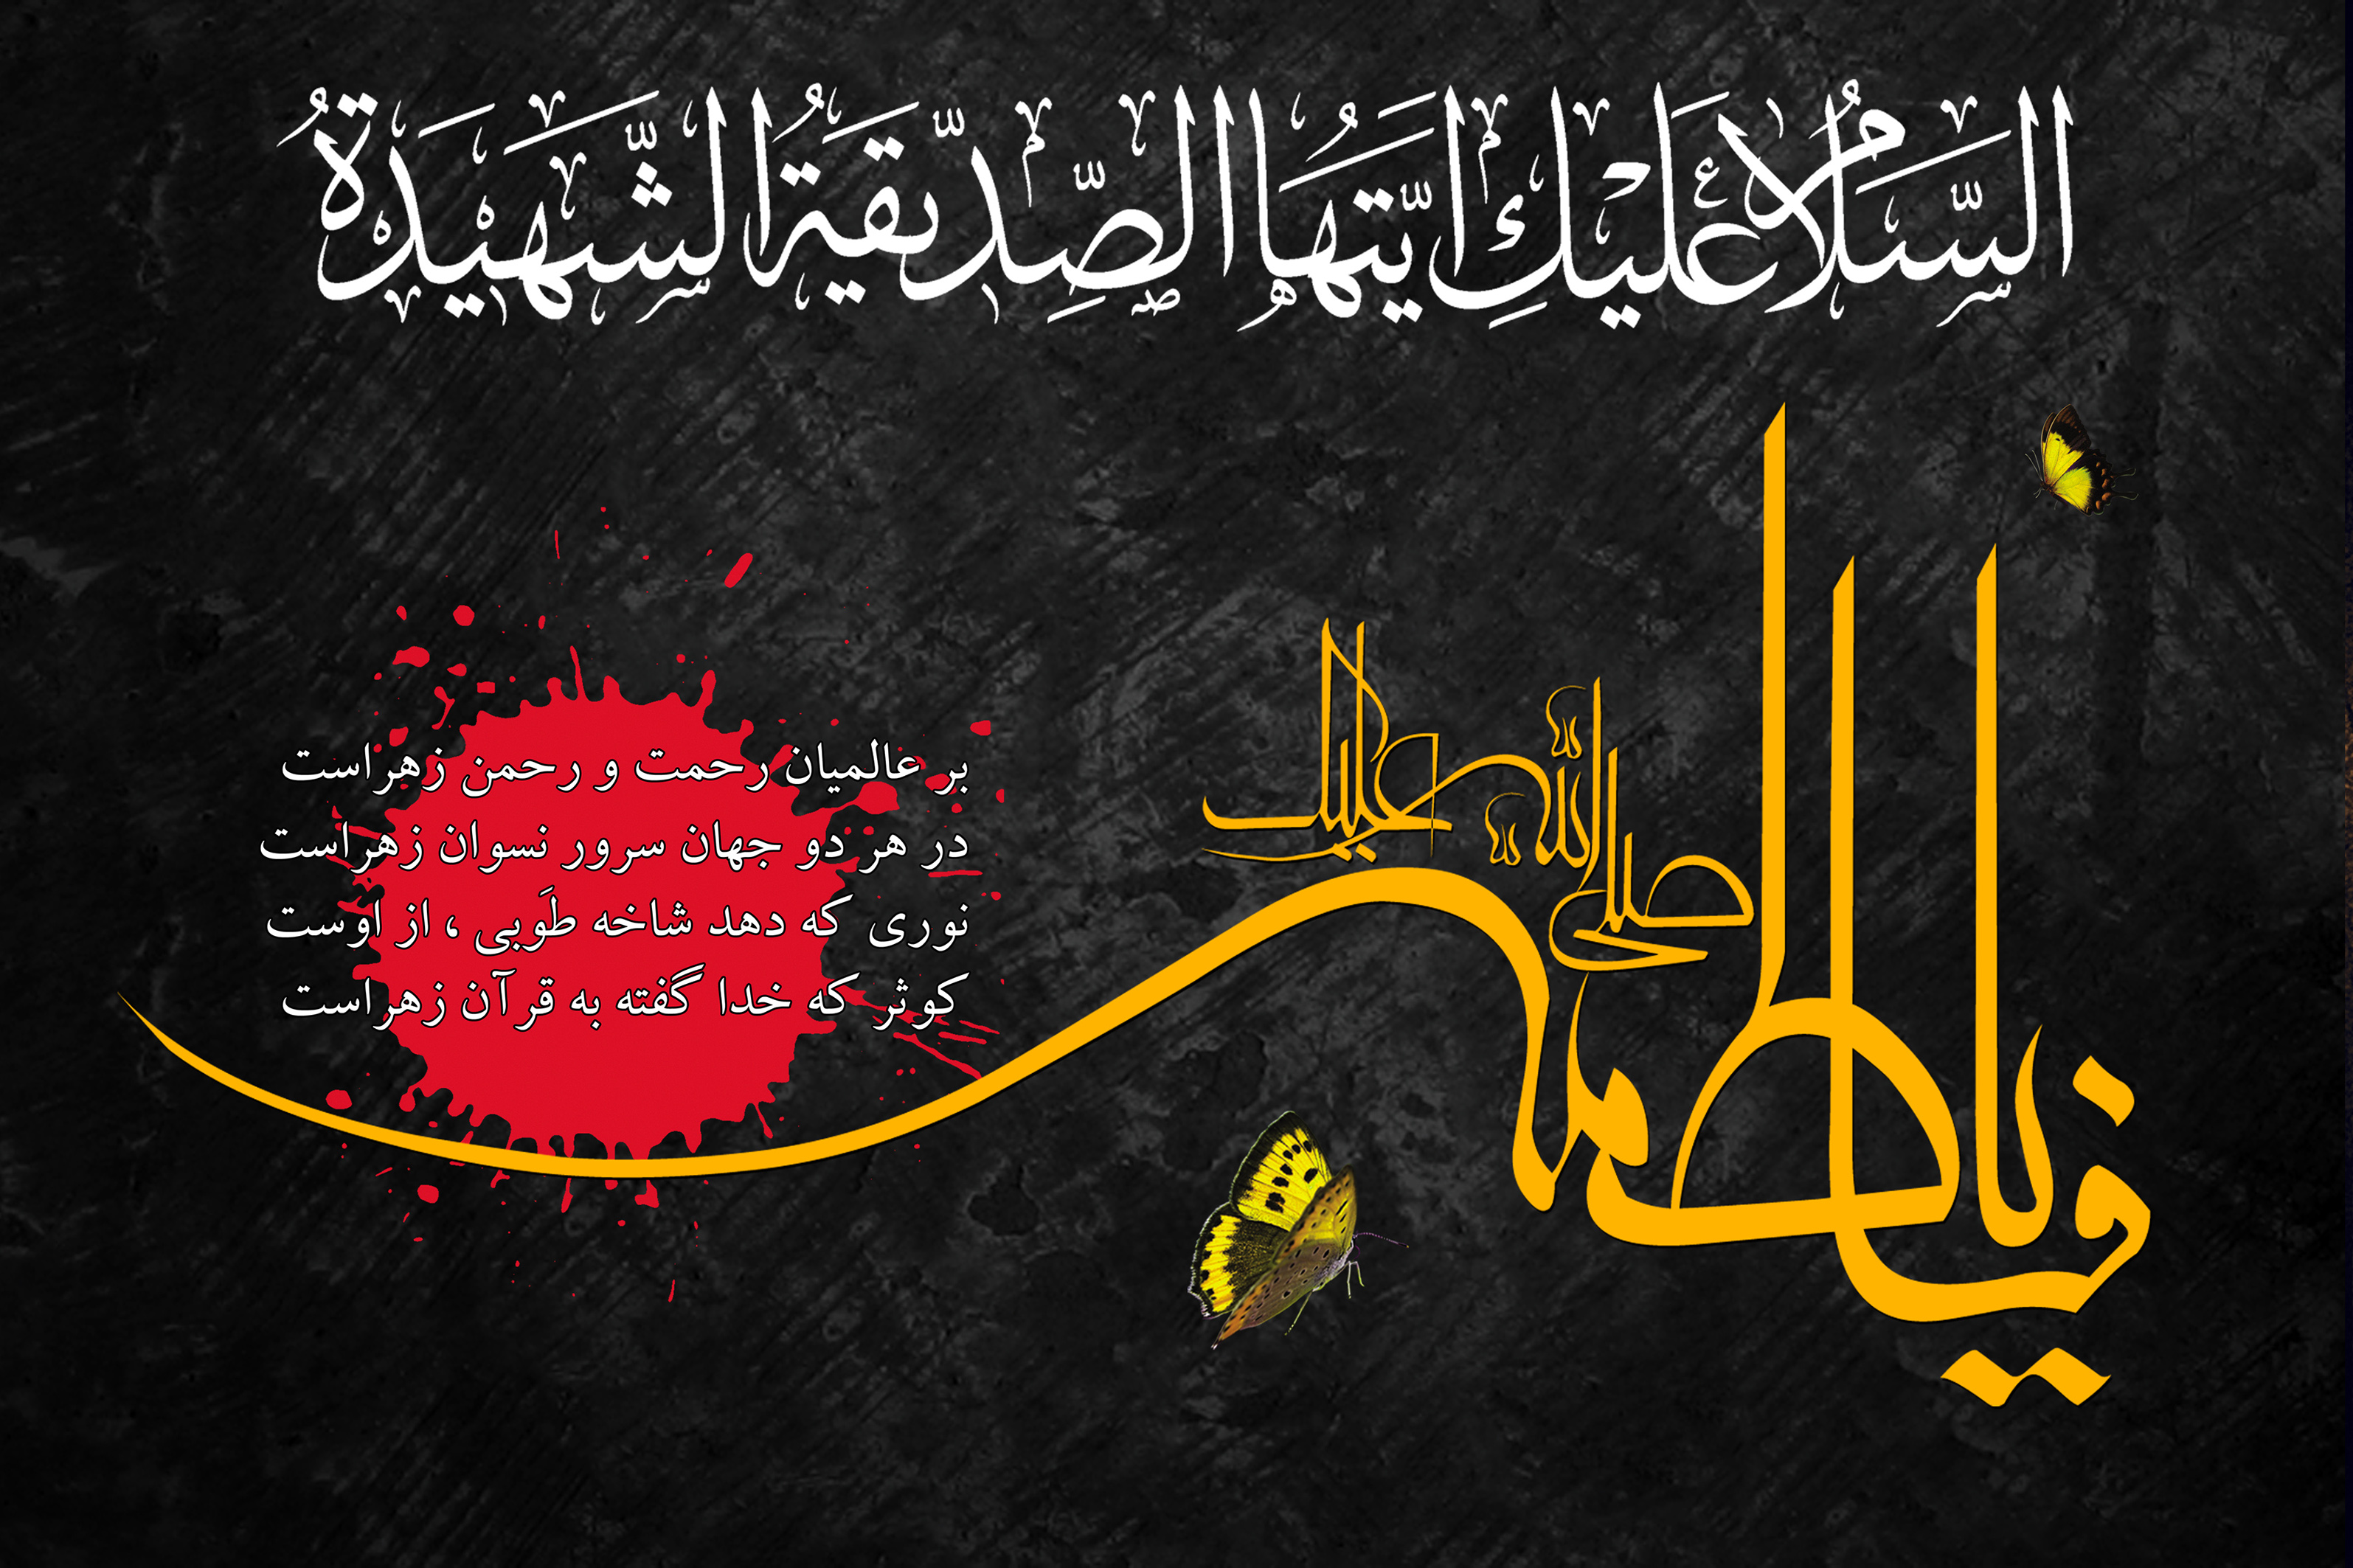 السَّلَامُ عَلَيْكِ اَيَّتُهَا الصِّدّيقَةُ الشَّهيدَةُ
صلی الله علیک
یا فاطمه
بر عالمیان رحمت و رحمن زهراست
در هر دو جهان سرور نسوان زهراست
نوری که دهد شاخه طَوبی ، از اوست
کوثر که خدا گفته به قرآن زهراست